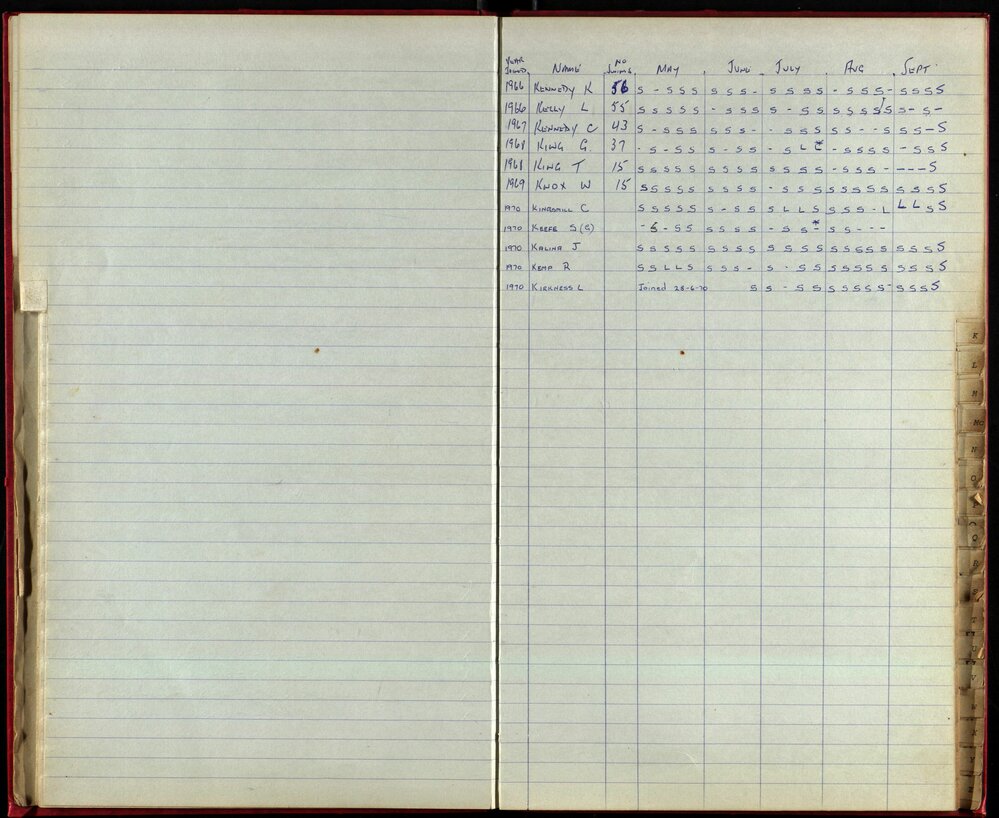 YEAR JOINED NAME NO SWIMS MAY JUNE JULY AUG SEPT
1966 KENNEDY K 56 S - S S S S S S - S S S S - S S S - S S S S
1966 KELLY L 55 S S S S S - S S S S - S S S S S S S S S - S -
1967 KENNEDY C 43 S - S S S S S S - - S S S S S - - S S S - S
1968 KING G. 37 - S - S S S - S S - S L - S S S S - S S S
1968 KING T 15 S S S S S S S S S S S S S - S S S - - - - S
1969 KNOX W 15 S S S S S S S S S - S S S S S S S S S S S S
1970 KINGSMILL C S S S S S S - S S S L L S S S S - L L L S S
1970 KEEFE S (G) - S - S S S S S S - S S * S S - - -
1970 KALINA J S S S S S S S S S S S S S S S S S S S S S S
1970 KEMP R S S L L S S S S - S - S S S S S S S S S S S
1970 KIRKNESS L Joined 28-6-70 S S - S S S S S S S - S S S S
K
L
M
MC
N
O
P
Q
R
S
T
U
V
W
X
Y
Z